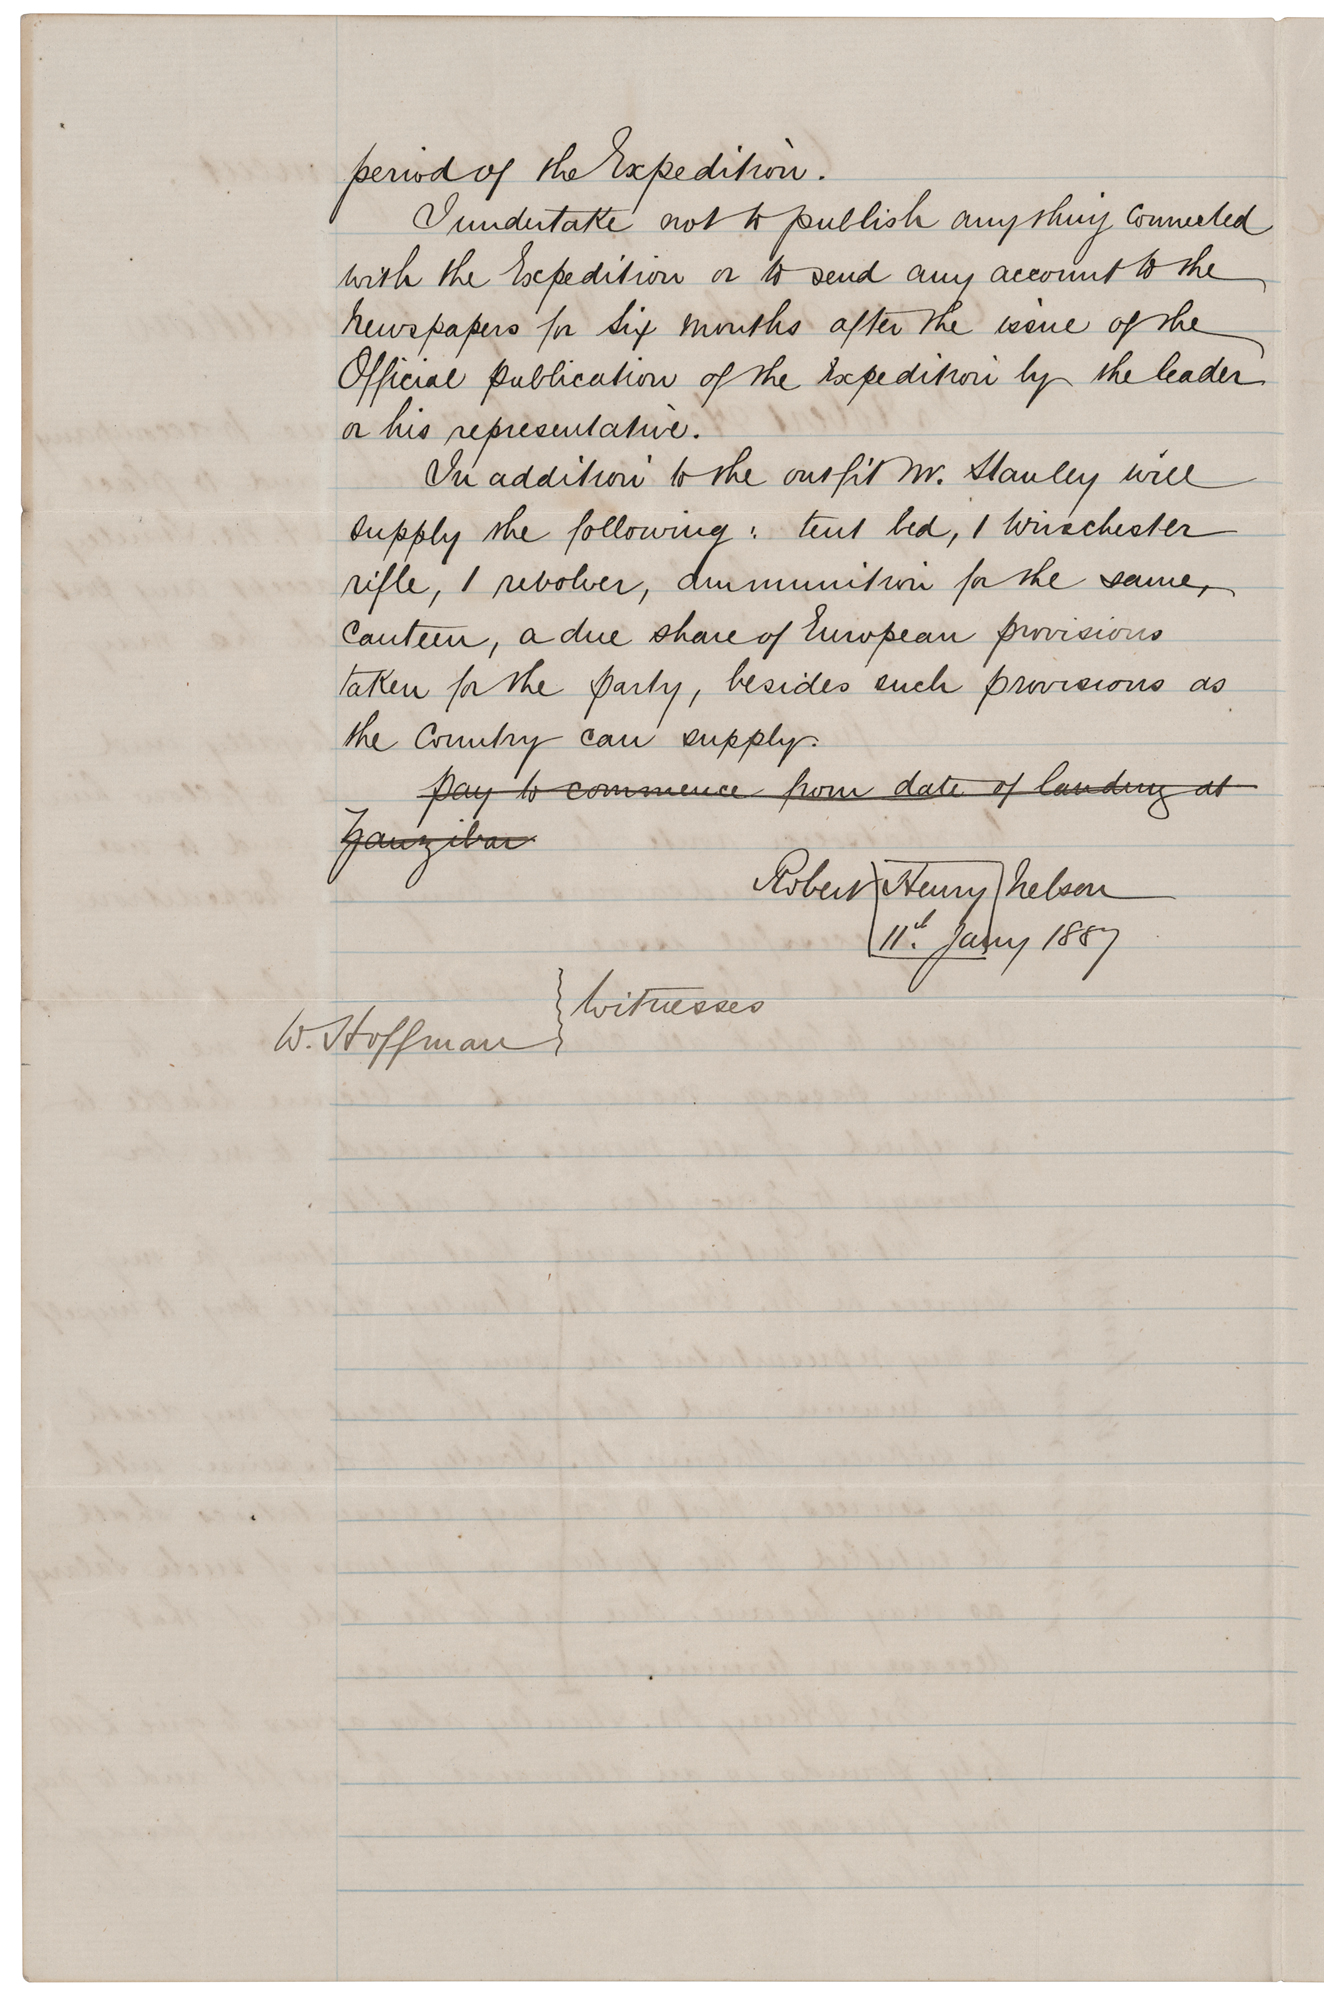 period of the Expedition.
I undertake not to publish anything connected
with the Expedition or to send any account to the
Newspapers for six months after the issue of the
Official publication of the Expedition by the leader
or his representative.
In addition to the outfit Mr. Stanley will
supply the following: tent bed, 1 Winchester
rifle, 1 revolver, ammunition for the same,
Canteen, a due share of European provisions
taken for the party, besides such provisions as
the Country can supply.
pay to commence from date of landing at
Zanzibar
Robert Henry Nelson
11th. Jany 1887
Witnesses
W. Hoffman